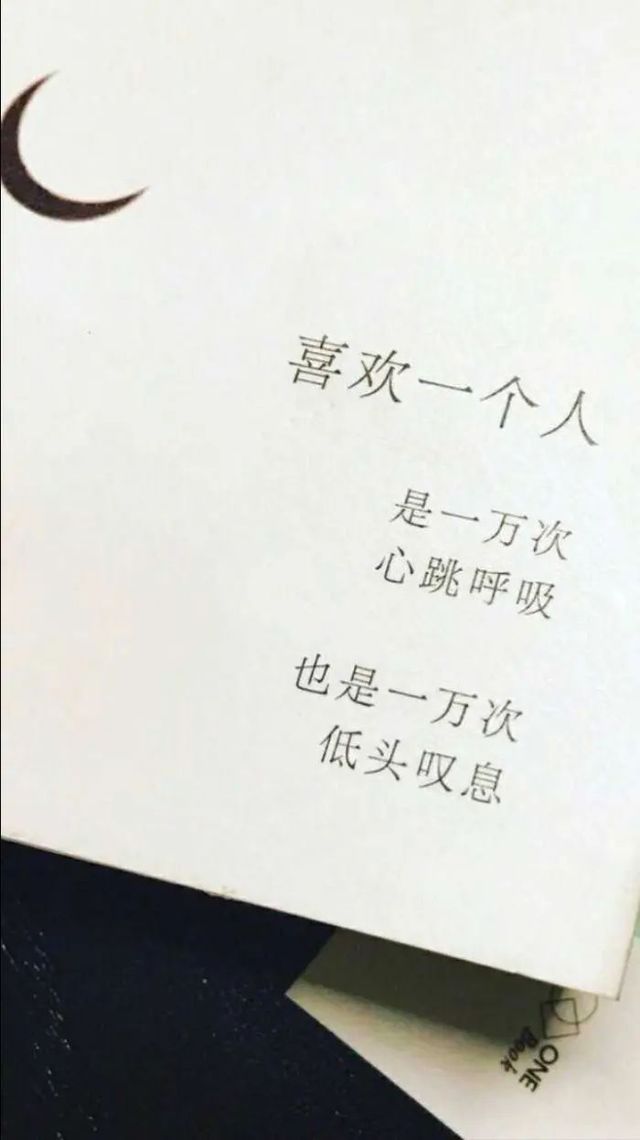 喜欢一个人
是一万次
心跳呼吸
也是一万次
低头叹息
ONE
Book